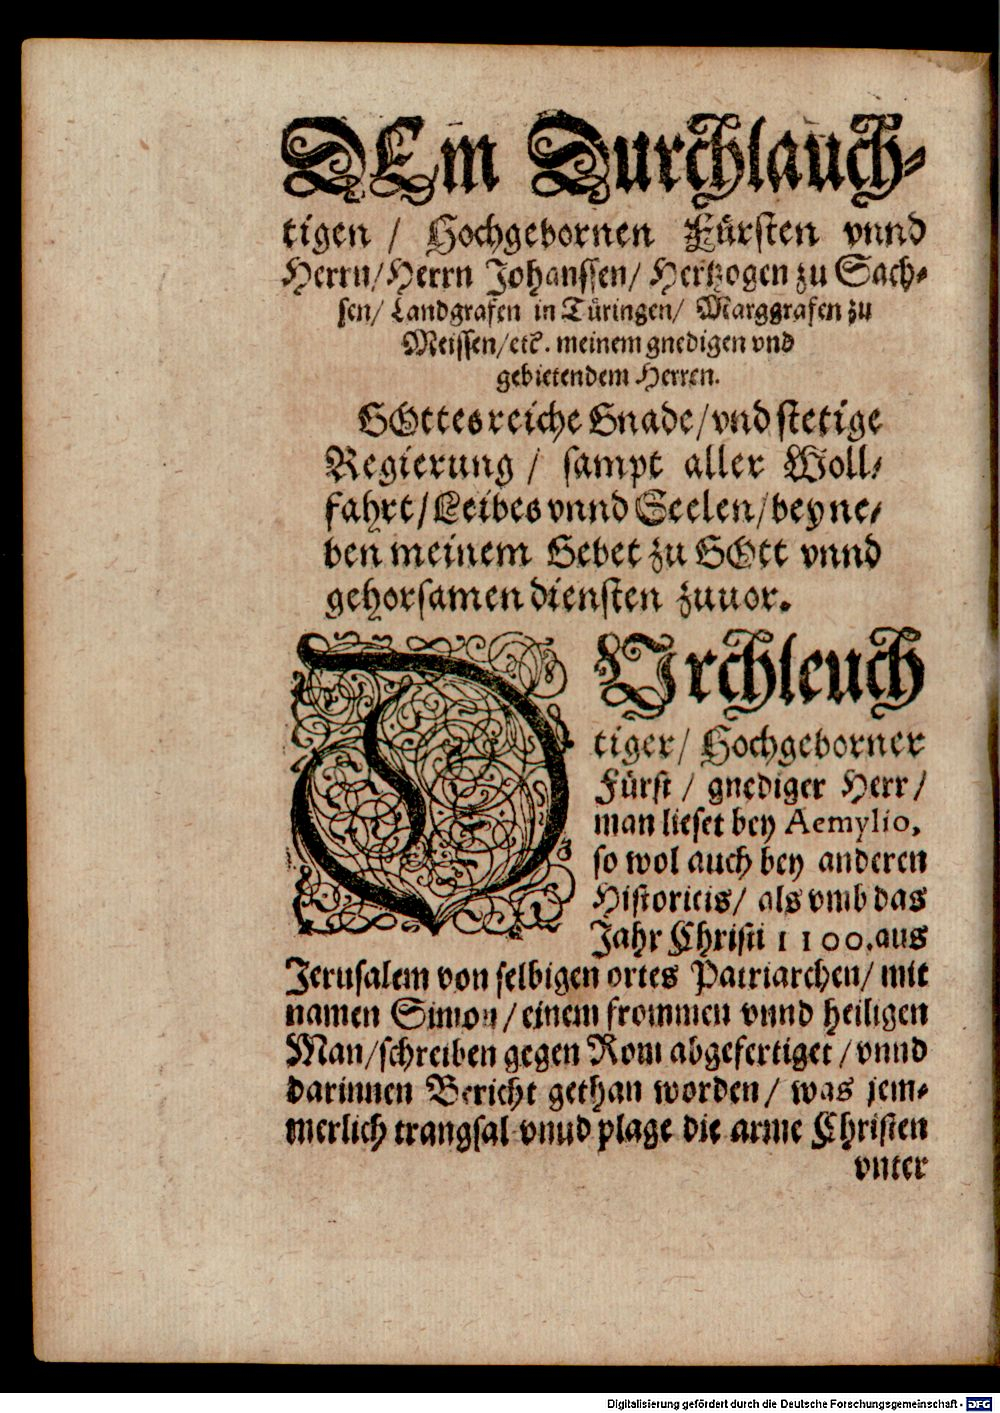 DEm Durchlauch-
tigen / Hochgebornen Fürsten vnnd
Herrn/Herrn Johanssen/ Hertzogen zu Sach-
sen/ Landgrafen in Türingen/ Marggrafen zu
Meissen/etc. meinem gnedigen vnd
gebietendem Herren.
GOttes reiche Gnade/vnd stetige
Regierung / sampt aller Woll-
fahrt/Leibes vnnd Seelen/beyne-
ben meinem Gebet zu GOtt vnnd
gehorsamen diensten zuuor.
DVrchleuch
tiger/ Hochgeborner
Fürst / gnediger Herr /
man lieset bey Aemylio,
so wol auch bey anderen
Historicis/ als vmb das
Jahr Christi 1100. aus
Jerusalem von selbigen ortes Patriarchen/ mit
namen Simon/einem frommen vnnd heiligen
Man/schreiben gegen Rom abgefertiget / vnnd
darinnen Bericht gethan worden / was jem-
merlich trangsal vnnd plage die arme Christen
vnter
Digitalisierung gefördert durch die Deutsche Forschungsgemeinschaft - DFG